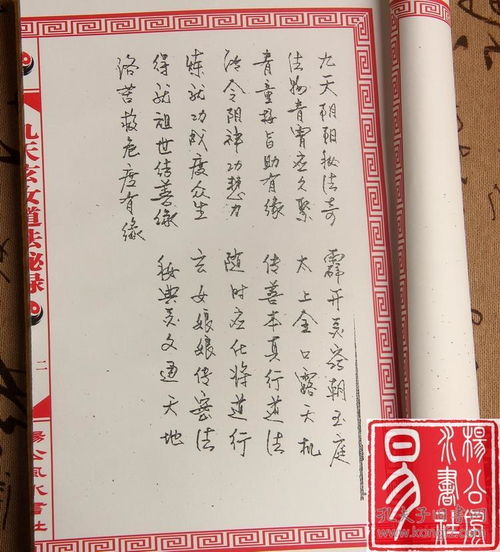 九天阴阳秘法奇 霹开灵窍朝玉庭
法物青霄应久聚 太上金口露天机
青童接旨助有缘 传善本真行道法
法令阴律功德力 随时应化将道行
炼就功成度众生 玄女娘娘传密法
得就祖世结善缘 秘典灵文通天地
苦救危度有缘
九天玄女道法秘录
二
杨公风水书社
杨公风水书社
易
孔夫子旧书网